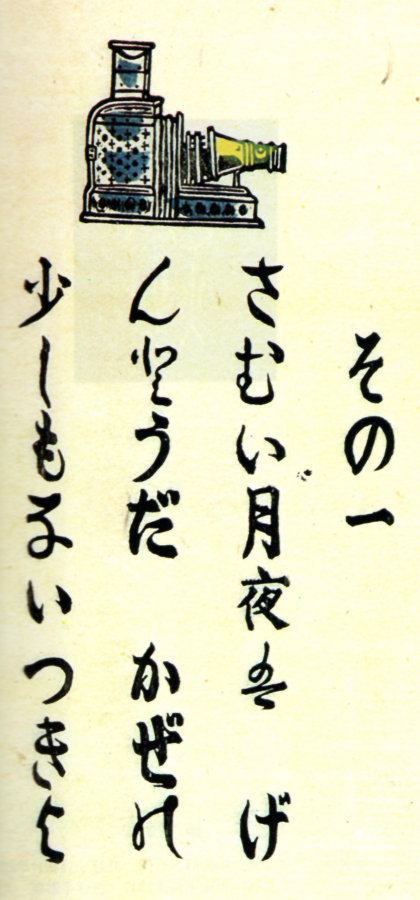 その一
さむい月夜は　げ
んとうだ　かぜの
少しもない つきよ